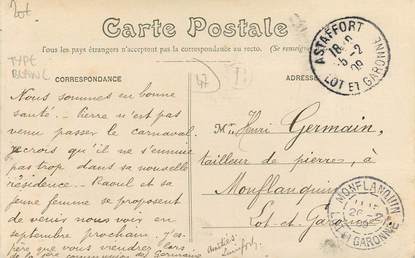 Lot
Carte Postale
Tous les pays étrangers n'acceptent pas la correspondance au recto. (Se renseigner
TYPE
BLANC
CORRESPONDANCE
ADRESSE
47
Nous sommes en bonne
santé. Pierre n'est pas
venu passer le carnaval.
Je crois qu'il ne s'ennuie
pas trop dans sa nouvelle
résidence. Raoul et sa
jeune femme se proposent
de venir nous voir en
septembre prochain. J'es-
père que vous viendrez lors
de la 1ère communion de Germaine
Mr Henri Germain,
tailleur de pierres, à
Monflanquin
Lot-et-Garonne
ASTAFFORT
-2
09
LOT ET GARONNE
MONFLANQUIN
LOT ET GARONNE